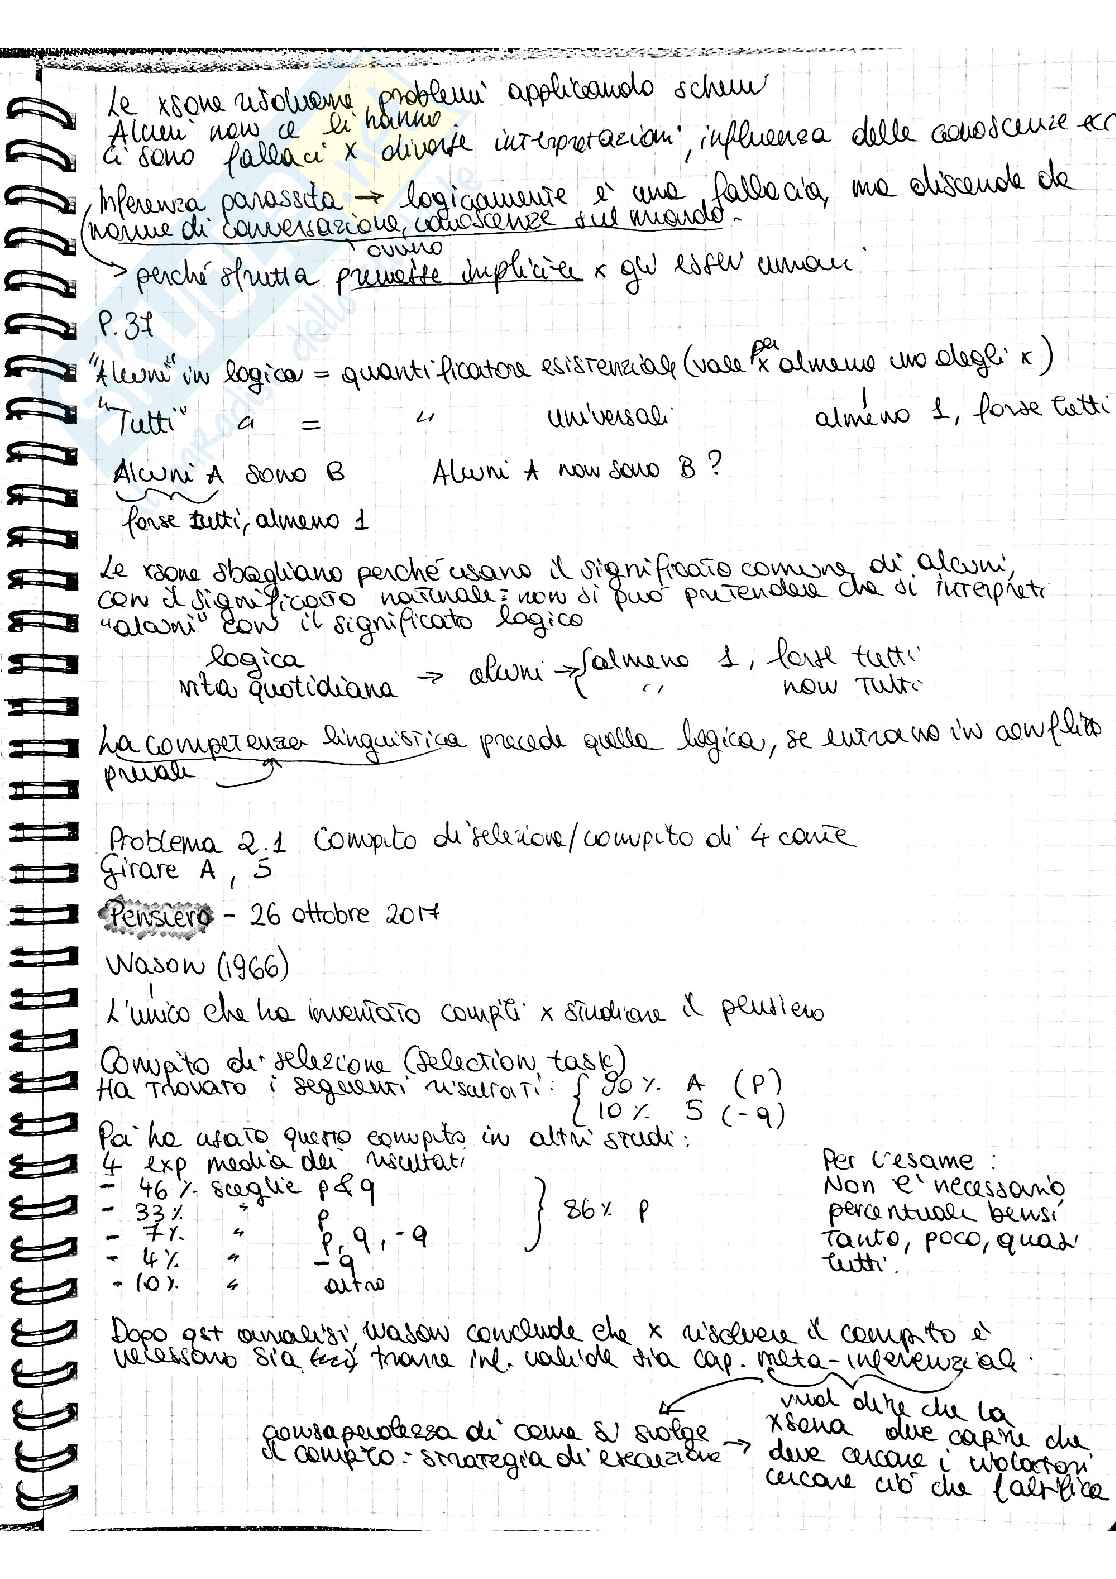 Le xsone risolvono problemi applicando schemi
Alcuni non ce li hanno.
Ci sono fallaci x diverse interpretazioni, influenza delle conoscenze ecc
Inferenza parassita → logicamente è una fallacia, ma discende da
norme di conversazione, conoscenze sul mondo.
ovvero
→ perché sfrutta premesse implicite x gli esseri umani
P. 37
"Alcuni" in logica = quantificatore esistenziale (vale per almeno uno degli x)
"Tutti" " = " universali almeno 1, forse tutti
Alcuni A sono B Alcuni A non sono B ?
forse tutti, almeno 1
Le xsone sbagliano perché usano il significato comune di alcuni,
con il significato naturale: non si può pretendere che si interpreti
"alcuni" con il significato logico
logica → alcuni → { almeno 1, forse tutti
vita quotidiana " non tutti
La competenza linguistica precede quella logica, se entrano in conflitto
prevale
Problema 2.1 Compito di selezione/compito di 4 carte
Girare A, 5
Pensiero - 26 ottobre 2017
Wason (1966)
L'unico che ha inventato compiti x studiare il pensiero
Compito di selezione (selection task)
Ha trovato i seguenti risultati: { 90% A (P)
10% 5 (-q)
Poi ha usato questo compito in altri studi:
4 exp media dei risultati
- 46% sceglie p & q
- 33% " p } 86% p
- 7% " p, q, -q
- 4% " -q
- 10% " altro
Per l'esame:
Non è necessario
percentuale bensì
tanto, poco, quasi
tutti.
Dopo qst analisi, Wason conclude che x risolvere il compito è
necessario sia trarre inf. valide sia cap. meta-inferenziali.
consapevolezza di come si svolge
il compito: strategia di esecuzione →
vuol dire che la
xsona deve capire che
deve cercare i violatori
cercare ciò che falsifica